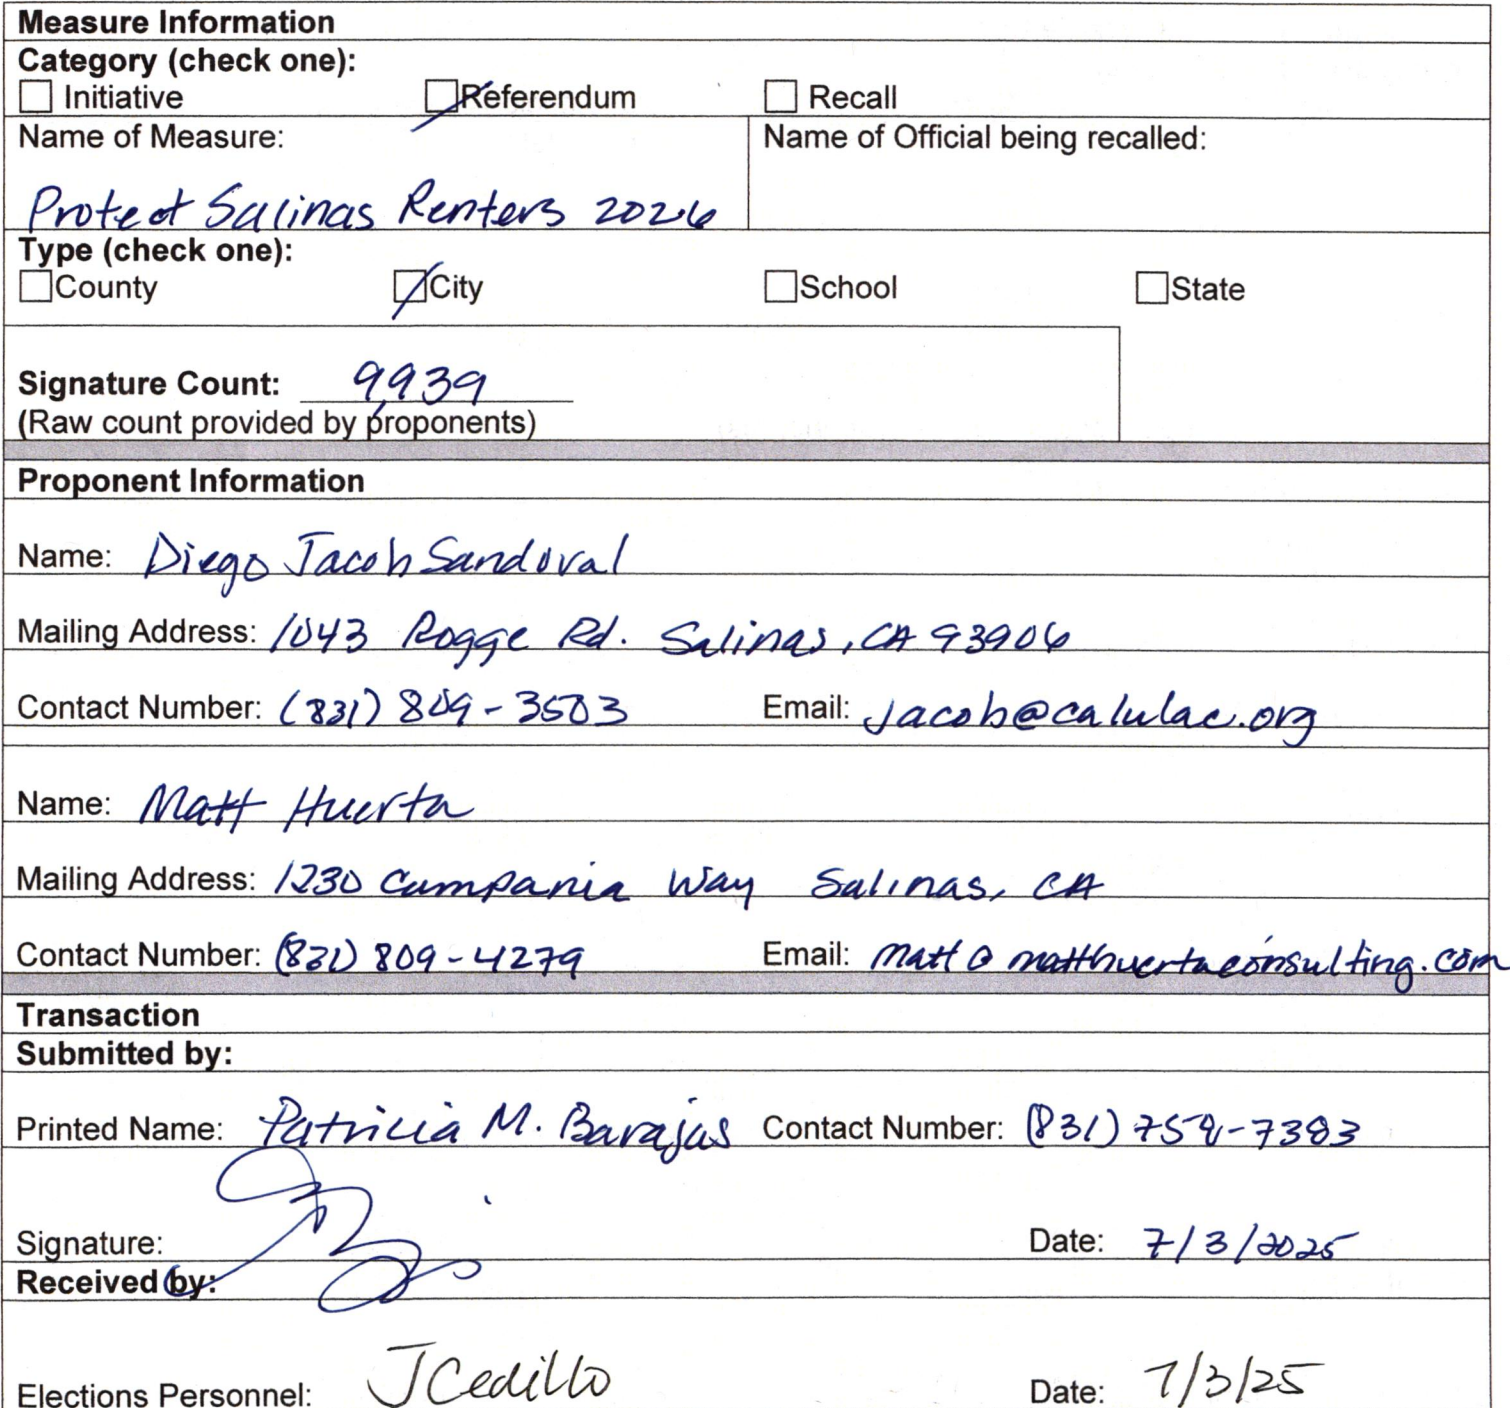 Measure Information
Category (check one):
☐ Initiative ☑ Referendum ☐ Recall
Name of Measure: Name of Official being recalled:
Protect Salinas Renters 2026
Type (check one):
☐ County ☑ City ☐ School ☐ State
Signature Count: 9,939
(Raw count provided by proponents)
Proponent Information
Name: Diego Jacob Sandoval
Mailing Address: 1043 Rogge Rd. Salinas, CA 93906
Contact Number: (831) 809-3503 Email: jacob@calulac.org
Name: Matt Huerta
Mailing Address: 1230 Campania Way Salinas, CA
Contact Number: (831) 809-4279 Email: matt@matthuertaconsulting.com
Transaction
Submitted by:
Printed Name: Patricia M. Barajas Contact Number: (831) 758-7383
Signature: Date: 7/3/2025
Received by:
Elections Personnel: J Cedillo Date: 7/3/25